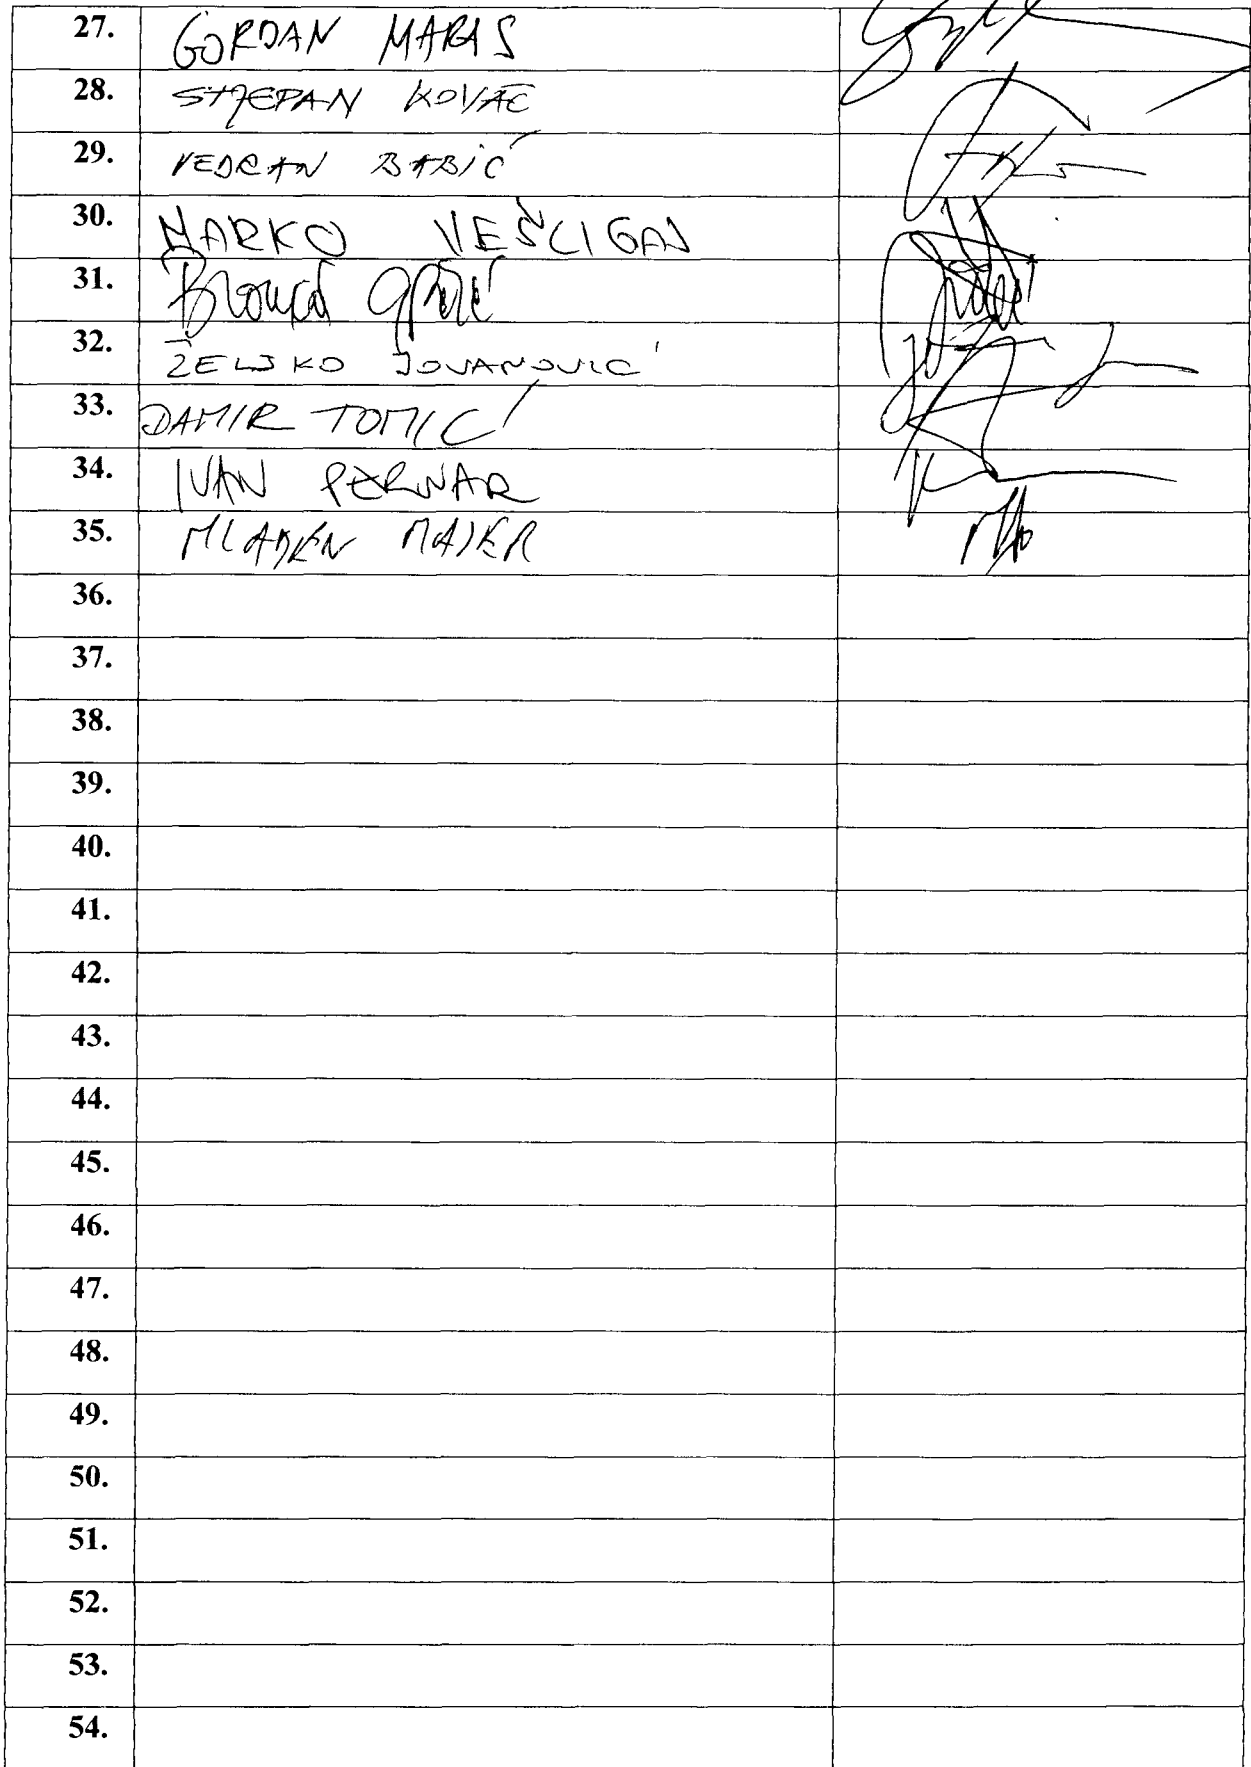 27. GORDAN MARAS
28. STJEPAN KOVAČ
29. VEDRAN BABIĆ
30. MARKO VEŠLIGAJ
31. Branka
32. ŽELJKO JOVANOVIĆ
33. DAMIR TOMIĆ
34. IVAN PERNAR
35. MLADEN MAJER
36.
37.
38.
39.
40.
41.
42.
43.
44.
45.
46.
47.
48.
49.
50.
51.
52.
53.
54.